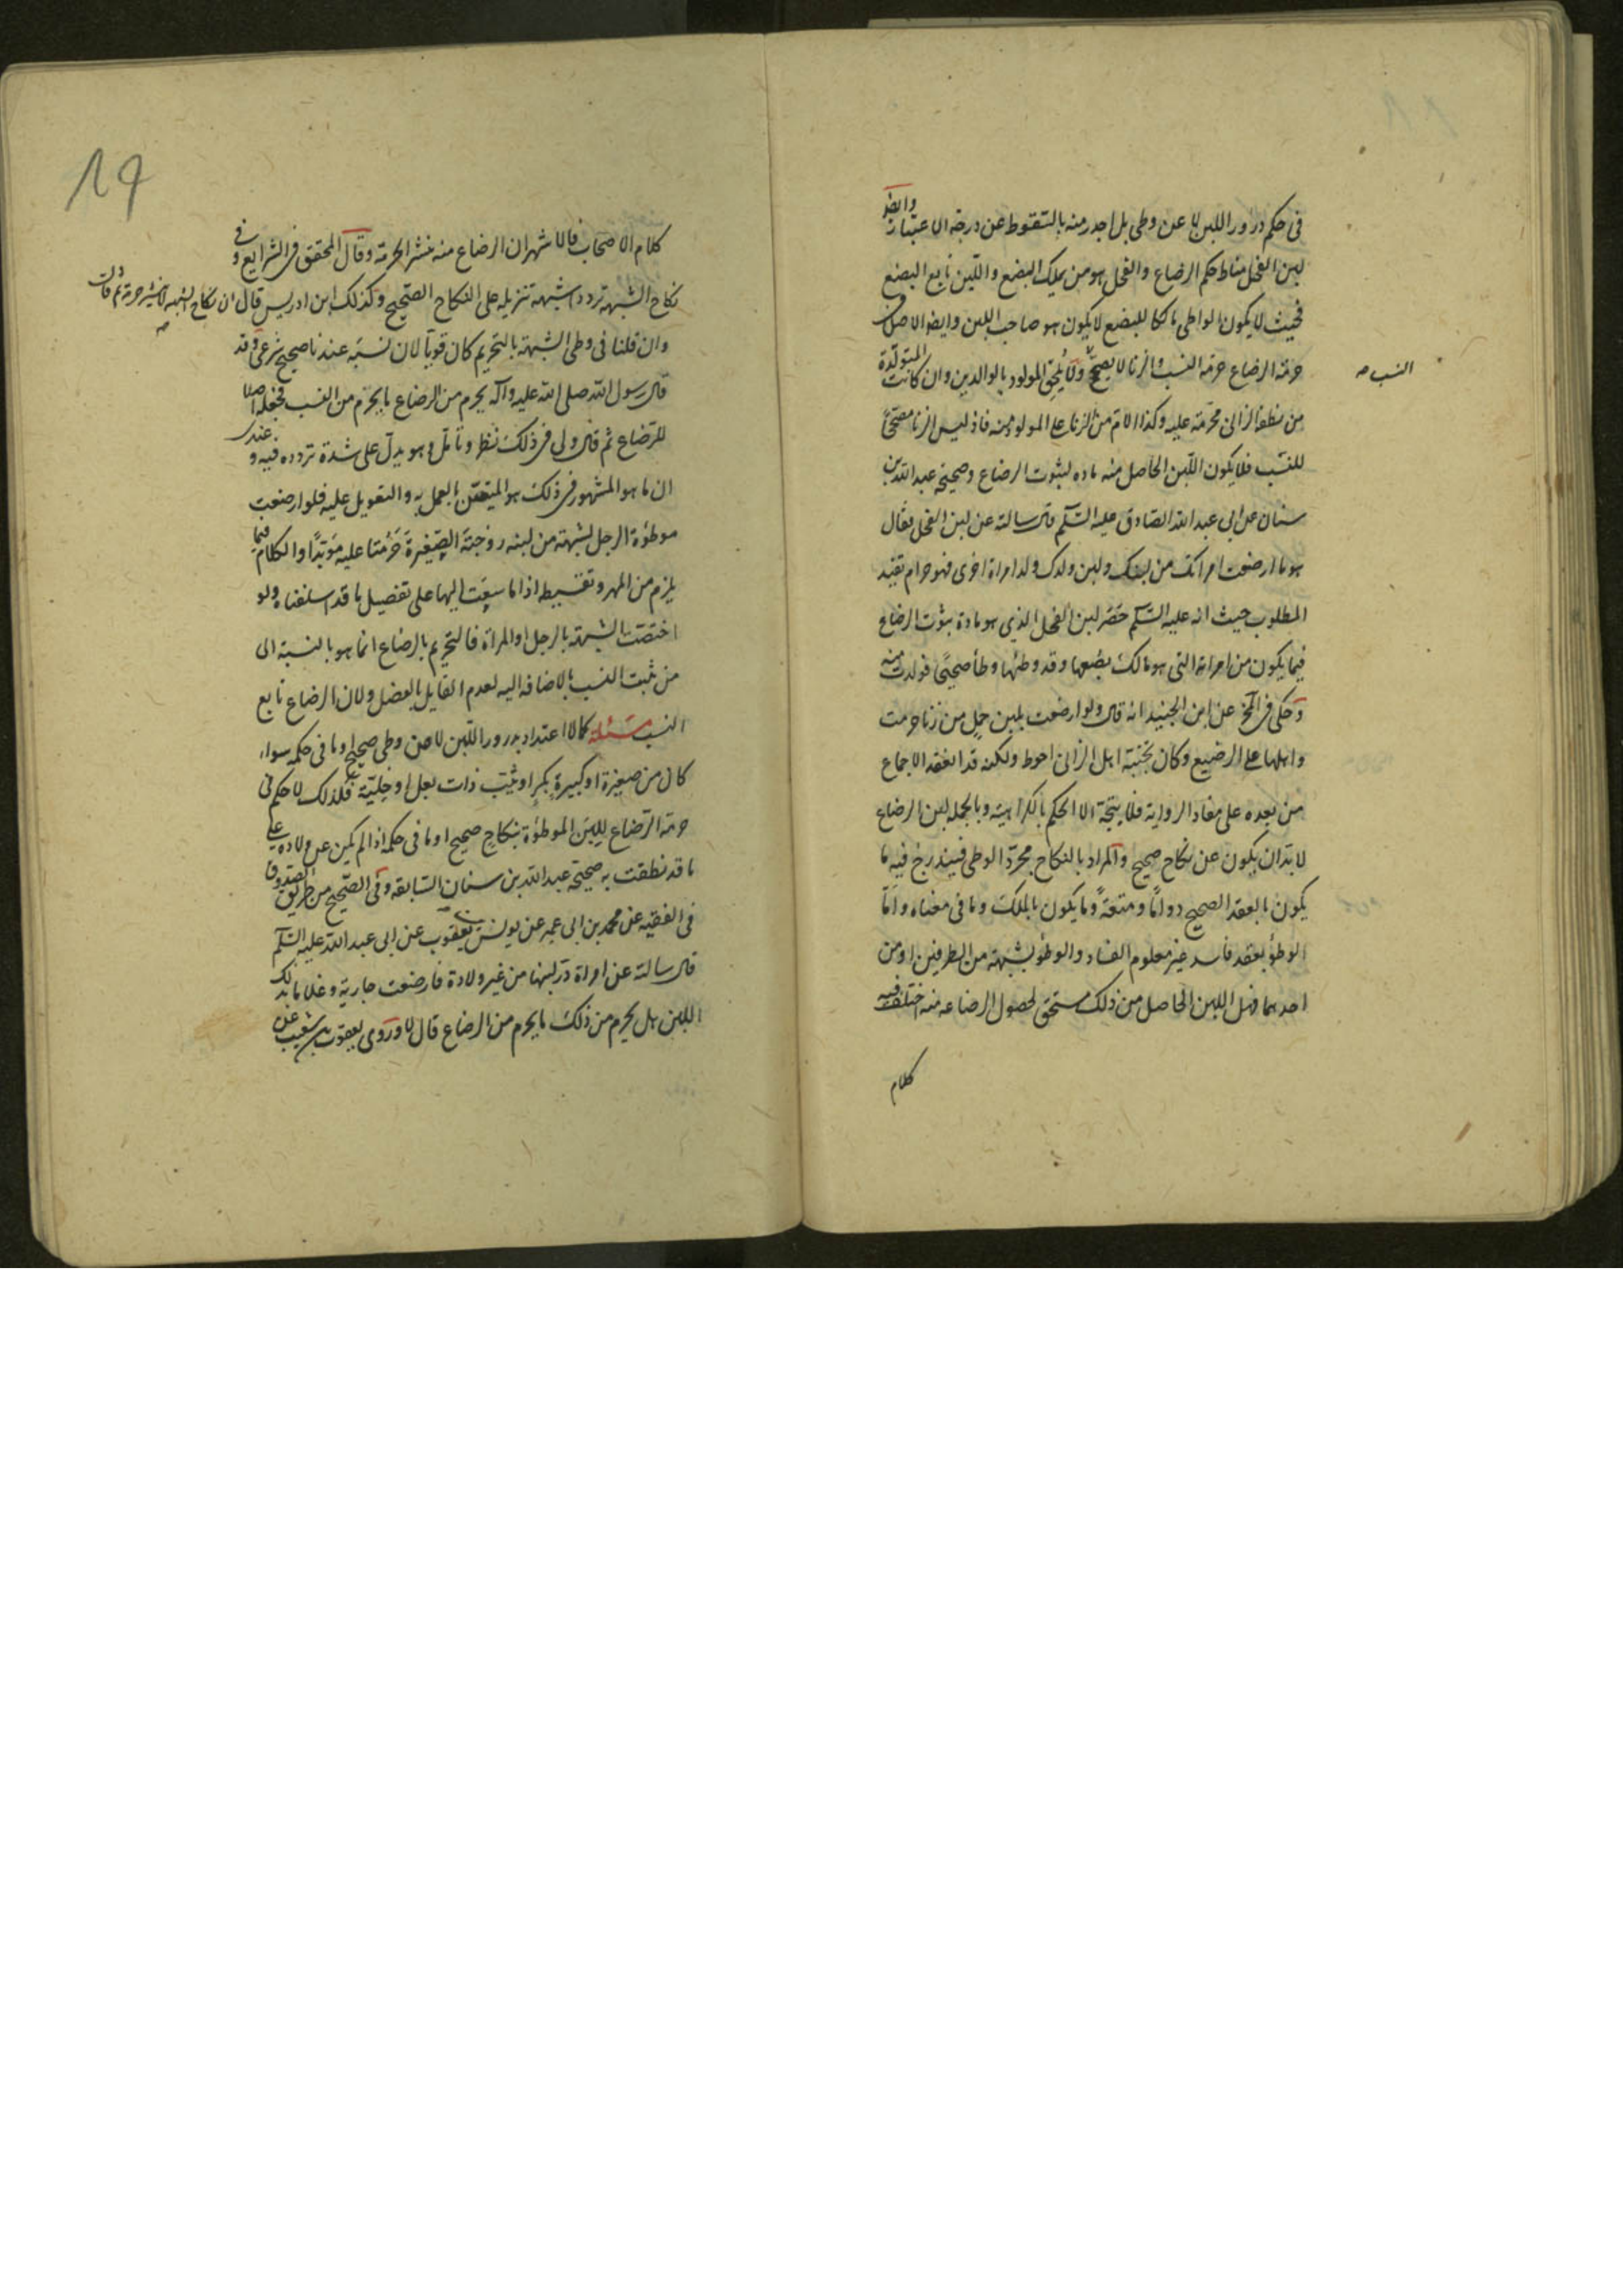 فى حكم درور اللبن لا عن وطى بل اجدر منه بالسقوط عن درجة الاعتبار وايضا
لبن الفحل مناط حكم الرضاع والفحل هو من يملك البضع واللبن تابع البضع
فحيث لا يكون الواطى مالكا للبضع لا يكون هو صاحب اللبن وايضا الاصل
حرمة الرضاع حرمة النسب والزنا لا يصحح ولا يلحق المولود بالوالدين وان كانت المتولدة
النسب صح
من نطفة الزانى محرمة عليه وكذا الام من الزنا على المولود منه فاذ ليس الزنا مصححا
للنسب فلا يكون اللبن الحاصل منه ماده لثبوت الرضاع وصحيحه عبد الله بن
سنان عن ابى عبد الله الصادق عليه السلم قال سالته عن لبن الفحل فقال
هو ما ارضعت امراتك من لبنك ولبن ولدك ولد امراة اخرى فهو حرام تفيد
المطلوب حيث انه عليه السلم حصر لبن الفحل الذى هو مادة ثبوت الرضاع
فيما يكون من امراته التى هو مالك بضعها وقد وطئها وطأ صحيحا فولدت منه
وحكى فى المخ عن ابن الجنيد انه قال ولو ارضعت بلبن حمل من زنا حرمت
واهلها على الرضيع وكان تجنبه اهل الزانى احوط ولكنه قد انعقد الاجماع
من بعده على مفاد الرواية فلا يتجه الا الحكم بالكراهية وبالجمله لبن الرضاع
لا بد ان يكون عن نكاح صحيح والمراد بالنكاح مجرد الوطى فيندرج فيه ما
يكون بالعقد الصحيح دواما ومتعة وما يكون بالملك وما فى معناه واما
الوطؤ بعقد فاسد غير معلوم الفساد والوطؤ بشبهة من الطرفين او من
احدهما فهل اللبن الحاصل من ذلك مستحق لحصول الرضاعه منه اختلف فيه
كلام
19
كلام الاصحاب فالاشهر ان الرضاع منه ينشر الحرمة وقال المحقق فى الشرايع وفى
نكاح الشبهة تردد اشبهه تنزيله على النكاح الصحيح وكذلك ابن ادريس قال ان نكاح الشبهه لا ينشر حرمة ثم قال
صح
وان قلنا فى وطى الشبهة بالتحريم كان قويا لان نسبه عندنا صحيح شرعى وقد
قال رسول الله صلى الله عليه وآله يحرم من الرضاع ما يحرم من النسب فجعله اصلا
للرضاع ثم قال ولى فى ذلك نظر وتامل وهو يدل على شدة تردده فيه وعندى
ان ما هو المشهور فى ذلك هو المتعين بالعمل به والتعويل عليه فلو ارضعت
موطؤة الرجل لشبهة من لبنه زوجته الصغيرة حرمتا عليه مؤبدا والكلام فيما
يلزم من المهر وتقسيطه اذا ما سيقت اليها على تفصيل ما قد اسلفناه ولو
اختصت الشبهة بالرجل او المراة فالتحريم بالرضاع انما هو بالنسبة الى
من ثبت النسب بالاضافه اليه لعدم القايل بالفصل ولان الرضاع تابع
النسب مسئلة كما لا اعتداد بدرور اللبن لا عن وطى صحيح او ما فى حكمه سواء
كان من صغيرة او كبيرة بكر او ثيب ذات بعل او خلية فكذلك لا حكم فى
حرمة الرضاع للبن الموطؤة بنكاح صحيح او ما فى حكمه اذا لم يكن عن ولاده على
ما قد نطقت به صحيحة عبد الله بن سنان السابقه وفى الصحيح من طريق الصدوق
فى الفقيه عن محمد بن ابى عمير عن يونس بن يعقوب عن ابى عبد الله عليه السلم
قال سالته عن امراة در لبنها من غير ولادة فارضعت جارية وغلاما بذلك
اللبن هل يحرم من ذلك ما يحرم من الرضاع قال لا وروى يعقوب بن شعيب عن